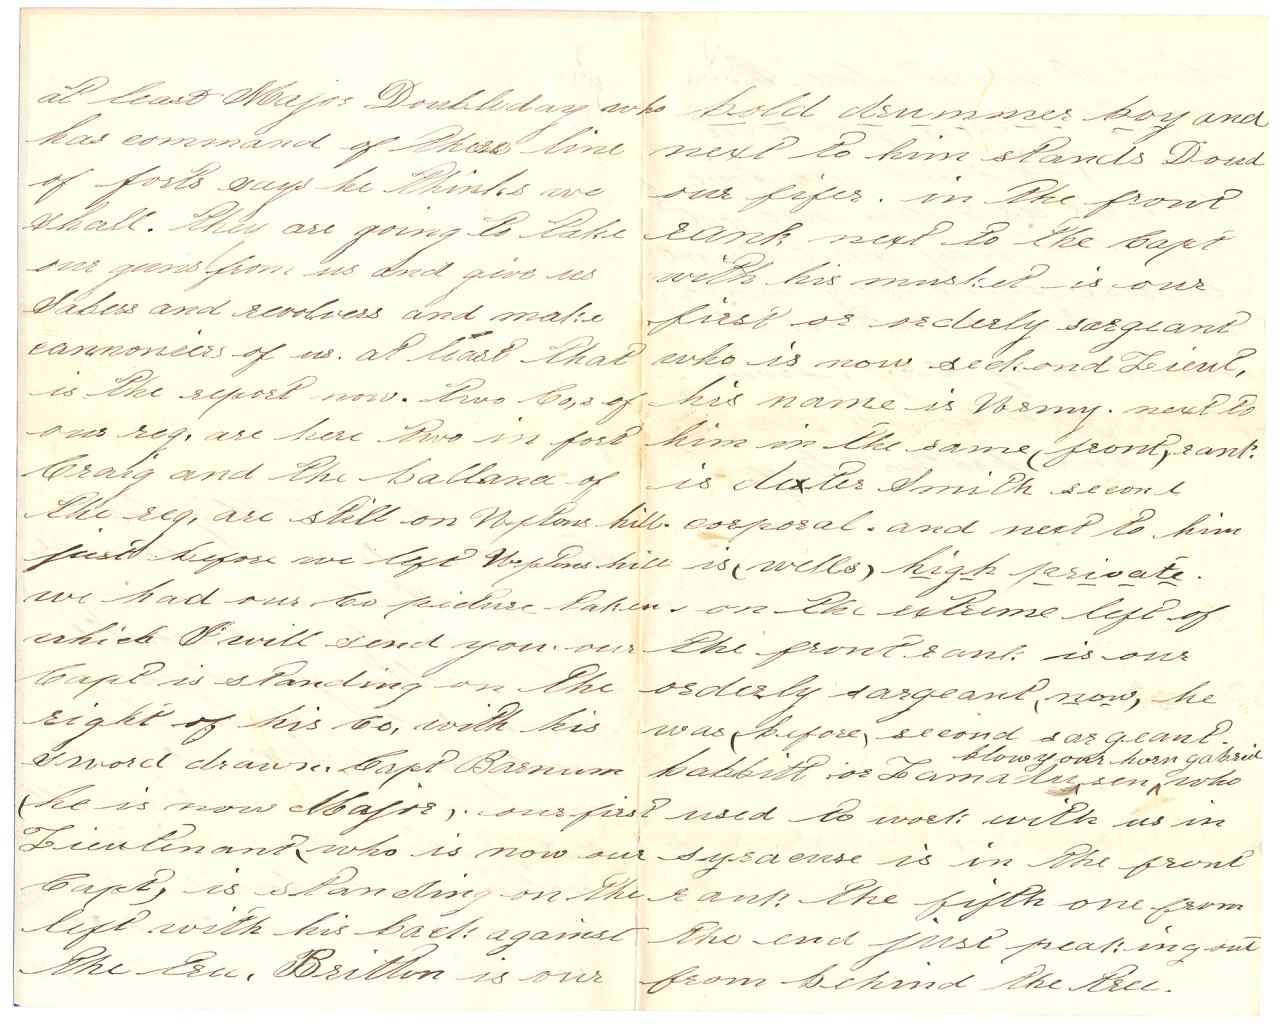 at least Major Doubleday who
has command of these line
of forts says he thinks we
shall. they are going to take
our guns from us and give us
Sabers and revolvers and make
cannoniers of us. at least that
is the report now. two Co,s of
our reg. are here two in fort
Craig and the ballanc of
the reg, are still on Uptons hill.
just before we left Uptons hill
we had our Co picture taken
which I will send you. our
Capt is standing on the
right of his Co, with his
sword drawn. Capt Barnum
(he is now Major). our first
Lieutenant, (who is now our
Capt) is standing on the
left with his back against
the tree. Britton is our
bold drummer boy and
next to him stands Doud
our fifer. in the front
rank next to the Capt
with his musket is our
first or orderly sargeant
who is now seckond Lieut,
his name is Virmy. next to
him in the same (front) rank
is dexter Smith second
corporal. and next to him
is (wells) high private.
on the extreme left of
the front rank is our
orderly sargeant (now) he
was (before) second sargeant.
blow your horn gabriel
babbitt or who
used to work with us in
syracuse is in the front
rank the fifth one from
the end just peaking out
from behind the tree.